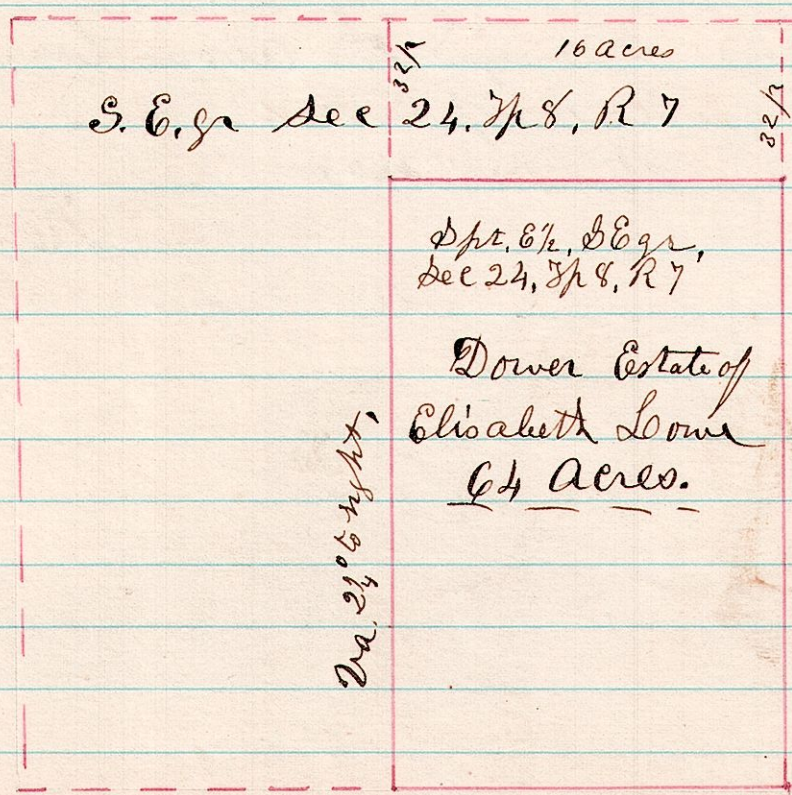 16 acres
32/r
32/r
S.E. qr Sec 24, Tp 8, R 7
S pt, E ½, S E qr,
Sec 24, Tp 8, R 7
Dower Estate of
Elisabeth Lowe
64 Acres.
Va. 2¼° to right,